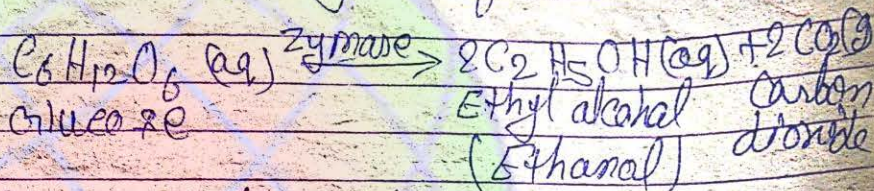 C6H12O6 (aq) Zymase → 2C2H5OH(aq) + 2CO2(g
Glucose Ethyl alcohal Carbon
(Ethanal) dioxide